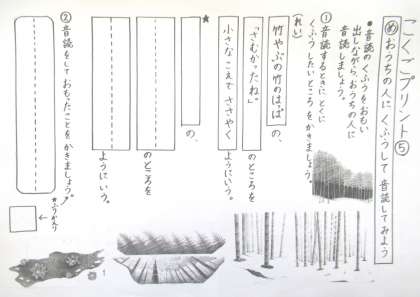 こくごプリント⑤
め おうちの人に くふうして 音読してみよう
●音読のくふうをおもい
出しながら、おうちの人に
音読しましょう。
①音読するときに とくに
くふうしたいところを かきましょう。
(れい)
竹やぶの竹のはっぱ の、
「さむかったね。」 のところを
小さなこえで ささやく ようにいう。
★
の、
のところを
ようにいう。
②音読をしておもったことを かきましょう。